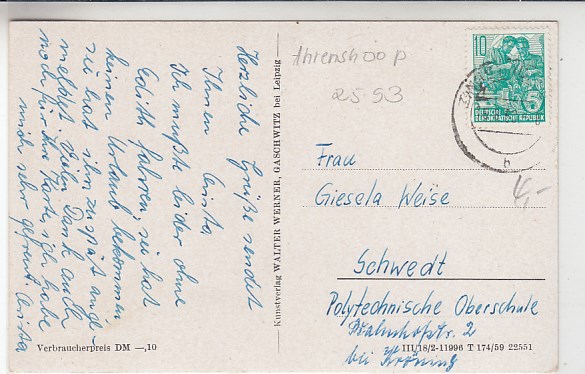 Herzliche Grüße sendet
Ihnen Christa
Ich mußte leider ohne
Edith fahren, sie hat
keinen Urlaub bekommen
sie hat ihn zu spät ange-
meldet. Vielen Dank auch
noch für Ihre Karte, ich habe
mich sehr gefreut. Christa
Verbraucherpreis DM —,10
Kunstverlag WALTER WERNER, GASCHWITZ bei Leipzig
Ahrenshoop
2593
10
5
DEUTSCHE
DEMOKRATISCHE REPUBLIK
ZINGST
b
4,-
Frau
Giesela Weise
Schwedt
Polytechnische Oberschule
Bahnhofstr. 2
bei Kröning
III/18/2-11996 T 174/59 22551